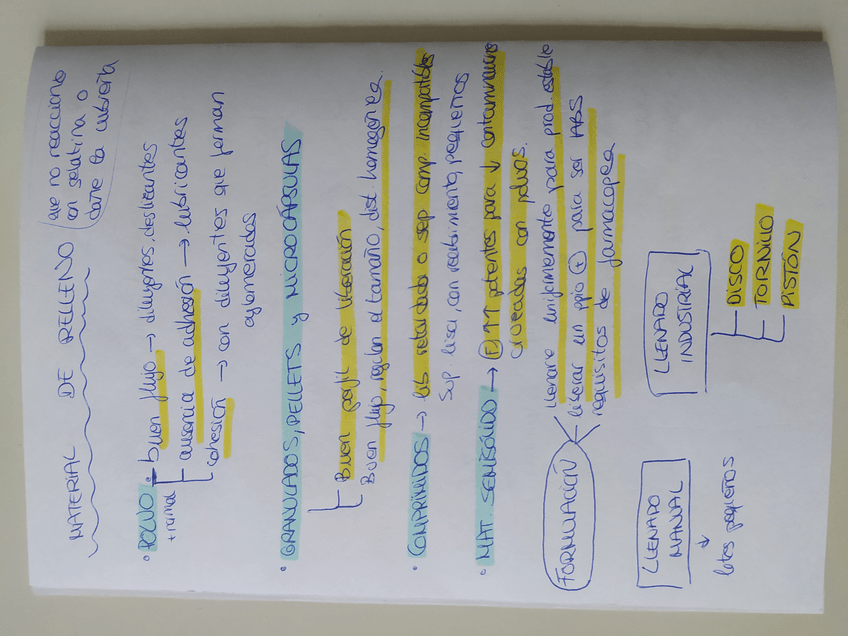 MATERIAL DE RELLENO
que no reaccione
con gelatina o
dañe la cubierta
• POLVO
+ normal
buen flujo → diluyentes, deslizantes
ausencia de adhesión → lubricantes
cohesión → con diluyentes que forman
aglomerados
• GRANULADOS, PELLETS y MICROCÁPSULAS
Buen perfil de liberación
Buen flujo, regulan el tamaño, dist. homogénea.
• COMPRIMIDOS → lib retardada o sep comp. incompatibles
Sup. lisa, con recubrimiento, pequeños
• MAT. SEMISÓLIDO → potentes para ↓ contaminaciones
cruzadas con polvos.
FORMULACIÓN
llenarse uniformemente para prod. estable
liberar un ppio (+) para ser ABS
requisitos de farmacopea
LLENADO
MANUAL
↓
lotes pequeños
LLENADO
INDUSTRIAL
DISCO
TORNILLO
PISTÓN